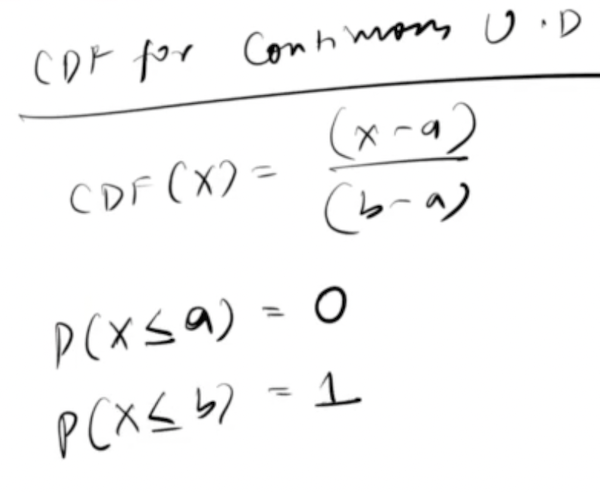 CDF for Continuous U.D
CDF(X) = (x-a)/(b-a)
P(X≤a) = 0
P(X≤b) = 1